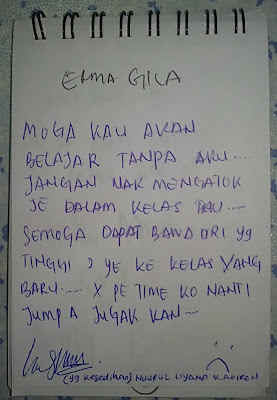 ERMA GILA
MOGA KAU AKAN
BELAJAR TANPA AKU....
JANGAN NAK MENGATOK
JE DALAM KELAS TAU....
SEMOGA DAPAT BAWA DIRI yg
TINGGI2 YE KE KELAS YANG
BARU.... X PE TIME KO NANTI
JUMPA JUGAK KAN...
(yg kesedihan) NUURUL LIYANA